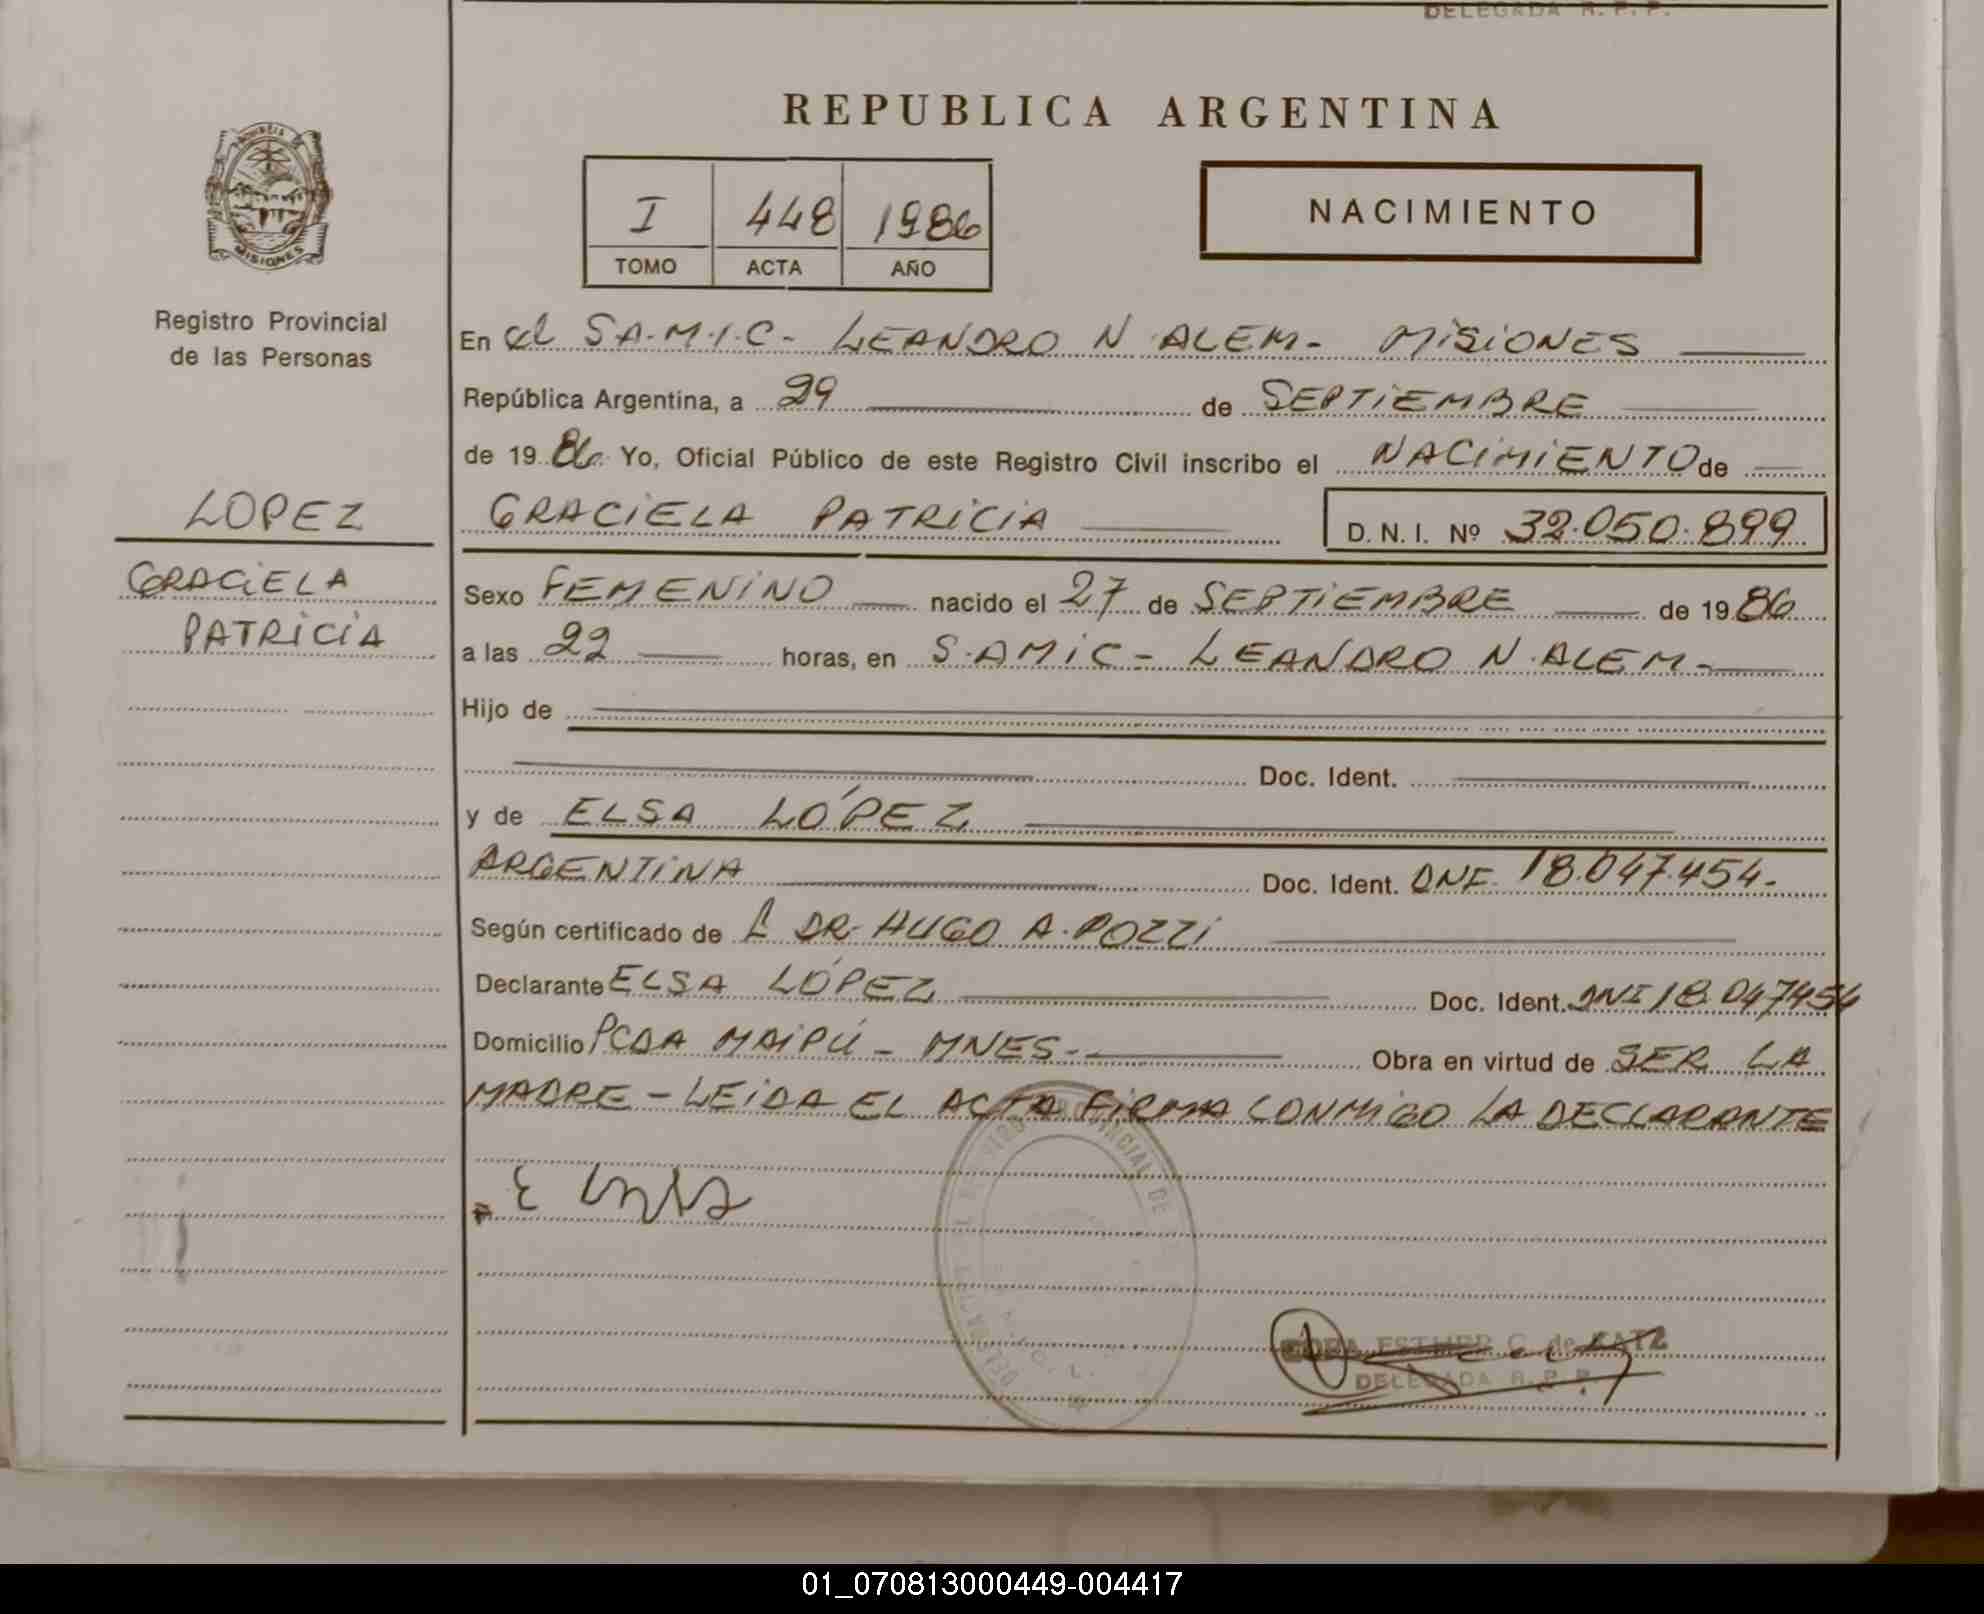 DELEGADA R. P. P.
REPUBLICA ARGENTINA
PROVINCIA DE
MISIONES
I 448 1986
TOMO ACTA AÑO
NACIMIENTO
Registro Provincial
de las Personas
LOPEZ
GRACIELA
PATRICIA
En el SA.M.I.C- LEANDRO N. ALEM- MISIONES
República Argentina, a 29 de SEPTIEMBRE
de 1986 Yo, Oficial Público de este Registro Civil inscribo el NACIMIENTO de
GRACIELA PATRICIA D. N. I. Nº 32.050.899
Sexo FEMENINO nacido el 27 de SEPTIEMBRE de 1986
a las 22 horas, en S.AMIC- LEANDRO N. ALEM-
Hijo de
Doc. Ident.
y de ELSA LÓPEZ
ARGENTINA Doc. Ident. DNI 18.047.454-
Según certificado de DR. HUGO A. POZZI
Declarante ELSA LÓPEZ Doc. Ident. DNI 18.047454
Domicilio PCDA MAIPÚ - MNES- Obra en virtud de SER LA
MADRE - LEIDA EL ACTA FIRMA CONMIGO LA DECLARANTE
ESTHER C. de KATZ
DELEGADA R. P. P.
01_070813000449-004417